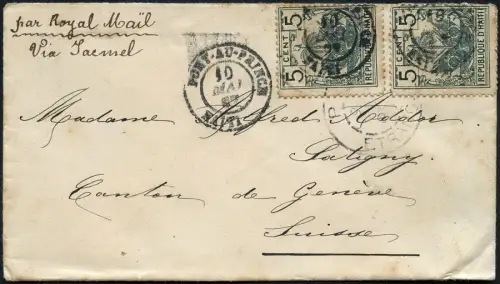 par Royal Mail
Via Jacmel
PORT-AU-PRINCE
10
MAI
HAITI
5 CENT 5
REPUBLIQUE D'HAITI
5 CENT 5
REPUBLIQUE D'HAITI
Madame Alfred Odor
Satigny
Canton de Genève
Suisse